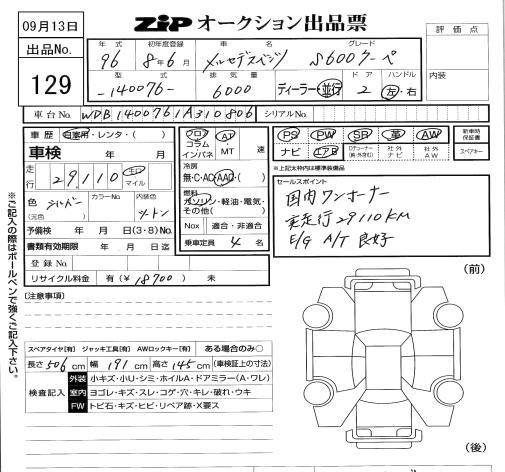 09月13日
ZiP オークション出品票
出品No.
129
年式 初年度登録 車名 グレード
96 8年6月 メルセデスベンツ S600クーペ
型式 排気量 ディーラー・並行 ドア ハンドル
-140076- 6000 2 左・右
評価点
内装
車台No. WDB1400761A310806 シリアルNo.
車歴 自家用・レンタ・( )
車検 年 月
走行 29,110 km マイル
色 (元色) シルバー カラーNo. 内装色
予備検 年 月 日(3・8)No.
書類有効期限 年 月 日迄
登録No.
リサイクル料金 有(¥ 18700 ) 未
フロア コラム インパネ AT・MT 速
冷房
無・C・AC・AAC・( )
燃料
ガソリン・軽油・電気・その他( )
Nox 適合・非適合
乗車定員 4 名
PS PW SR 革 AW 新車時保証書
ナビ エアB 社外ナビ 社外AW スペアキー
※上記太枠内は標準装備品
セールスポイント
国内ワンオーナー
実走行29110KM
E/G A/T 良好
※ご記入の際はボールペンで強くご記入下さい。
[注意事項]
スペアタイヤ[有] ジャッキ工具[有] AWロックキー[有] ある場合のみ○
長さ506cm 幅191cm 高さ145cm (車検証上の寸法)
検査記入
外装 小キズ・小U・シミ・ホイルA・ドアミラー(A・ワレ)
室内 ヨゴレ・キズ・スレ・コゲ・穴・キレ・破れ・ウキ
FW トビ石・キズ・ヒビ・リペア跡・X要ス
(前)
(後)